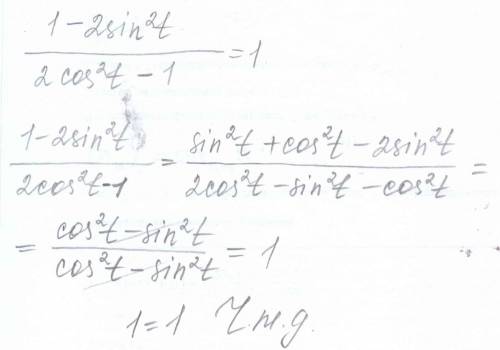 (1 - 2sin²t)/(2cos²t - 1) = 1
(1 - 2sin²t)/(2cos²t - 1) = (sin²t + cos²t - 2sin²t)/(2cos²t - sin²t - cos²t) =
= (cos²t - sin²t)/(cos²t - sin²t) = 1
1 = 1 Ч.т.д.